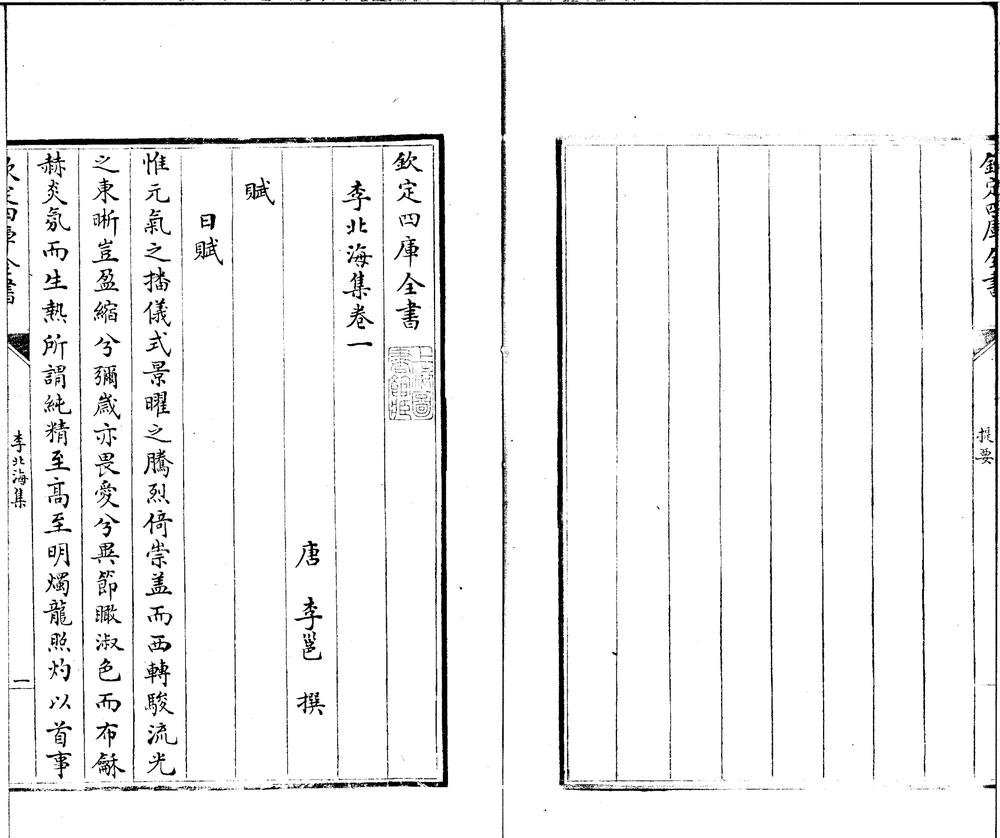 欽定四庫全書
提要
欽定四庫全書
李北海集卷一
唐 李邕 撰
賦
日賦
惟元氣之播儀式景曜之騰烈倚崇盖而西轉駿流光
之東晣豈盈縮兮彌嵗亦畏愛兮異節瞰淑色而布龢
赫炎氛而生熱所謂純精至髙至明燭龍照灼以首事
欽定四庫全書
李北海集
一